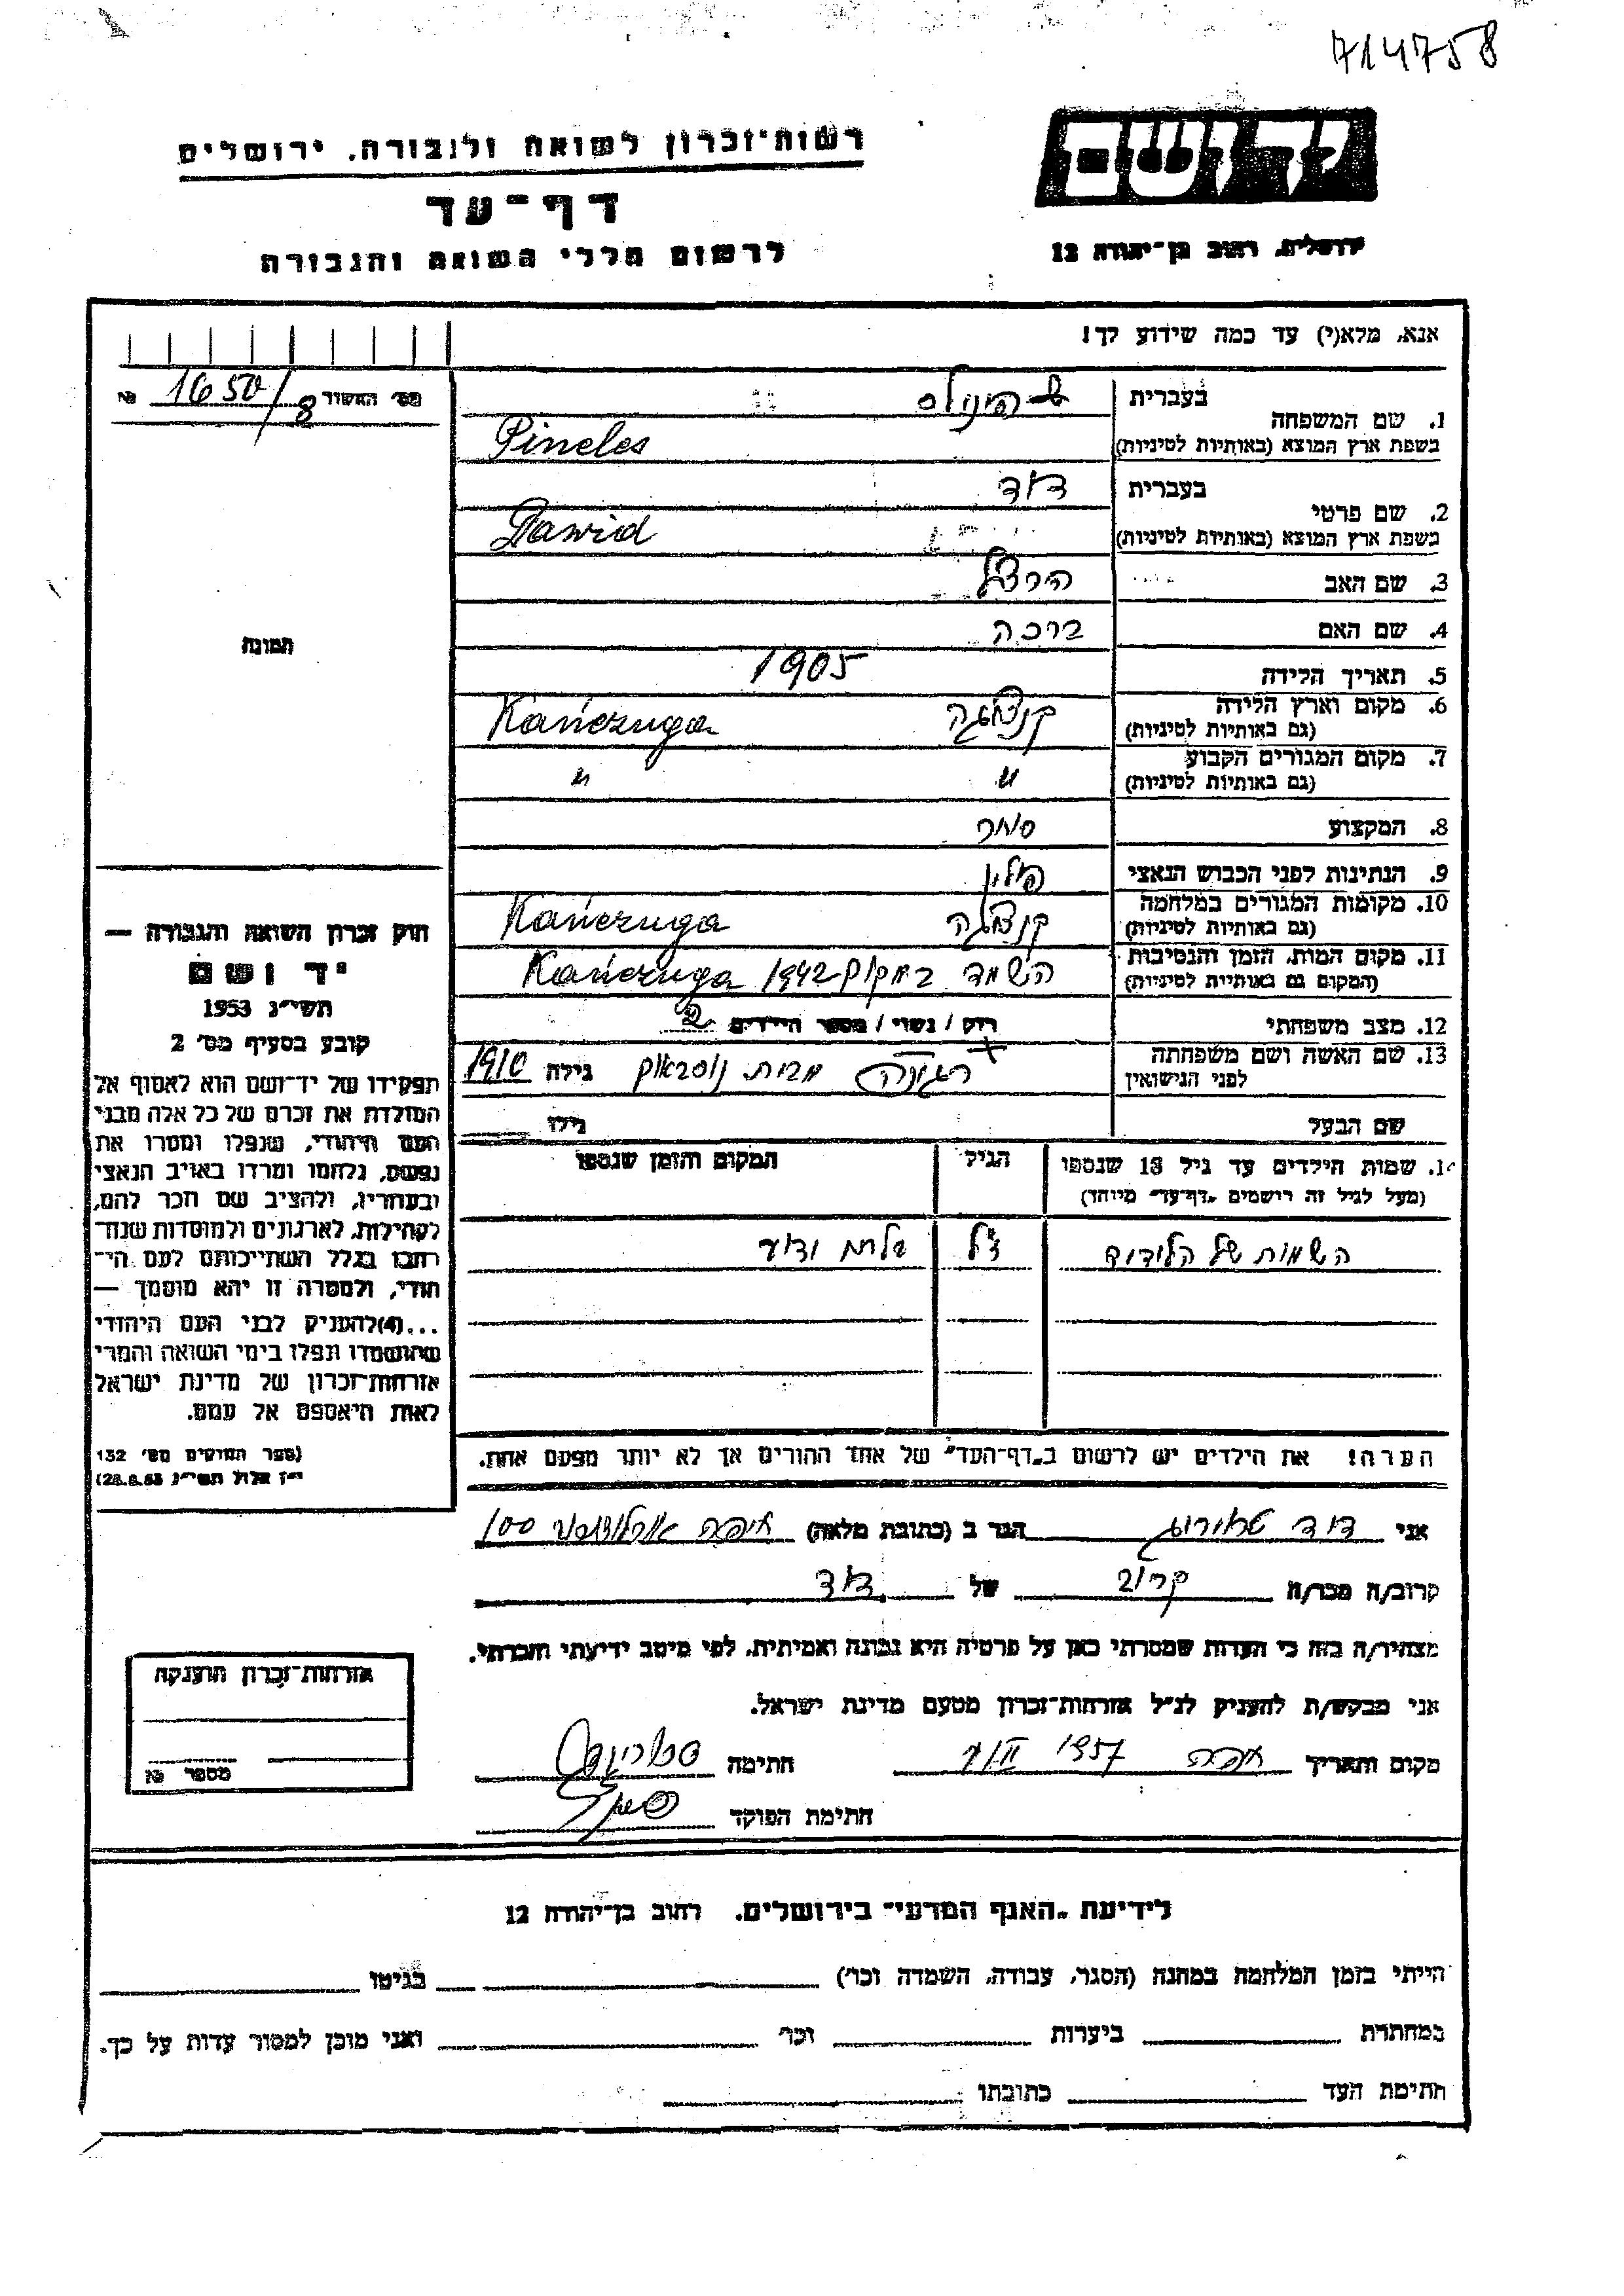 714758
רשות־זכרון לשואה ולגבורה, ירושלים
דף־עד
לרשום חללי השואה והגבורה
יד ושם
ירושלים, רחוב בן־יהודה 12
אנא, מלא(י) עד כמה שידוע לך!
מס׳ האשור 1650/8 №
1. שם המשפחה בעברית פינילס
בשפת ארץ המוצא (באותיות לטיניות) Pineles
2. שם פרטי בעברית דוד
בשפת ארץ המוצא (באותיות לטיניות) Dawid
3. שם האב הירצל
4. שם האם ברכה
5. תאריך הלידה 1905
6. מקום וארץ הלידה
(גם באותיות לטיניות) קנצוגה Kańczuga
7. מקום המגורים הקבוע
(גם באותיות לטיניות) " "
8. המקצוע סוחר
9. הנתינות לפני הכבוש הנאצי פולין
10. מקומות המגורים במלחמה
(גם באותיות לטיניות) קנצוגה Kańczuga
11. מקום המות, הזמן והנסיבות
(המקום גם באותיות לטיניות) הושמד במקום 1942 Kańczuga
12. מצב משפחתי רווק / נשוי / מספר הילדים 2
13. שם האשה ושם משפחתה
לפני הנישואין מבית גילה 1910
שם הבעל גילו
תמונה
חוק זכרון השואה והגבורה —
יד ושם
תשי״ג 1953
קובע בסעיף מס׳ 2
תפקידו של יד־ושם הוא לאסוף אל
המולדת את זכרם של כל אלה מבני
העם היהודי, שנפלו ומסרו את
נפשם, נלחמו ומרדו באויב הנאצי
ובעוזריו, ולהציב שם וזכר להם,
לקהילות, לארגונים ולמוסדות שנח־
רבו בגלל השתייכותם לעם הי־
הודי, ולמטרה זו יהא מוסמך —
...(4) להעניק לבני העם היהודי
שהושמדו ונפלו בימי השואה והמרי
אזרחות־זכרון של מדינת ישראל
לאות היאספם אל עמם.
(ספר החוקים מס׳ 132
י״ז אלול תשי״ג 28.8.53)
14. שמות הילדים עד גיל 18 שנספו הגיל המקום והזמן שנספו
(מעל לגיל זה רושמים „דף־עד״ מיוחד)
השמות של הילדים
הערה! את הילדים יש לרשום ב„דף־העד״ של אחד ההורים אך לא יותר מפעם אחת.
אני דוד הגר ב (כתובת מלאה) חיפה ארלוזורוב 100
קרוב/ה מכר/ה קרוב של דוד
מצהיר/ה בזה כי העדות שמסרתי כאן על פרטיה היא נכונה ואמיתית, לפי מיטב ידיעתי והכרתי.
אני מבקש/ת להעניק לנ״ל אזרחות־זכרון מטעם מדינת ישראל.
מקום ותאריך חיפה 1957 חתימה
חתימת הפוקד
אזרחות־זכרון הוענקה
מספר №
לידיעת „האגף המדעי״ בירושלים, רחוב בן־יהודה 12
הייתי בזמן המלחמה במחנה (הסגר, עבודה, השמדה וכו׳) בגיטו
במחתרת ביערות וכו׳ ואני מוכן למסור עדות על כך.
חתימת העד כתובתו